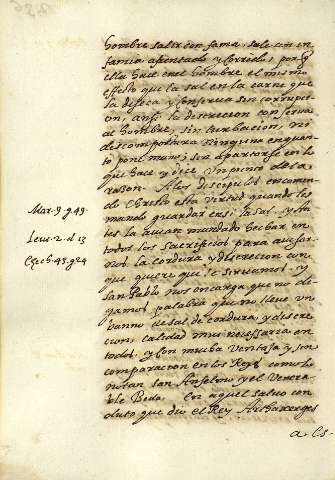 hombre salir con fama, sale un in
famia afrentado y corrido; porq̃
ella haçe en el hombre el mismo
effeto que la sal en la carne que
la diseca y conserua sin corrupci
on, ansi la discrecion conserua
al hombre, sin turbacion, ni
descompostura ninguna en quan
to pone mano, sin apartarse en lo
que haçe y diçe un punto de la
raçon. A los discipulos encomen
do Christo esta virtud quando les
mando guardar en si la sal. y An
tes la auian mandado hechar en
todos los sacrificios para auisar
nos la cordura y discrecion con
que quiere que le siruamos. y
san Pablo nos encarga que no di
gamos palabra que no lleue un
grano de sal de cordura, y discre
cion; calidad muy necessaria en
todos. y con mucha ventaja y sin
comparacion en los Reyes como lo
notan san Anselmo y el Venera
ble Beda. En aquel saluo con
duto que dio el Rey Artaxerxes
a Es
Mar. 9. g. 49.
Leui. 2. d. 13
Ezech. 43. g. 24